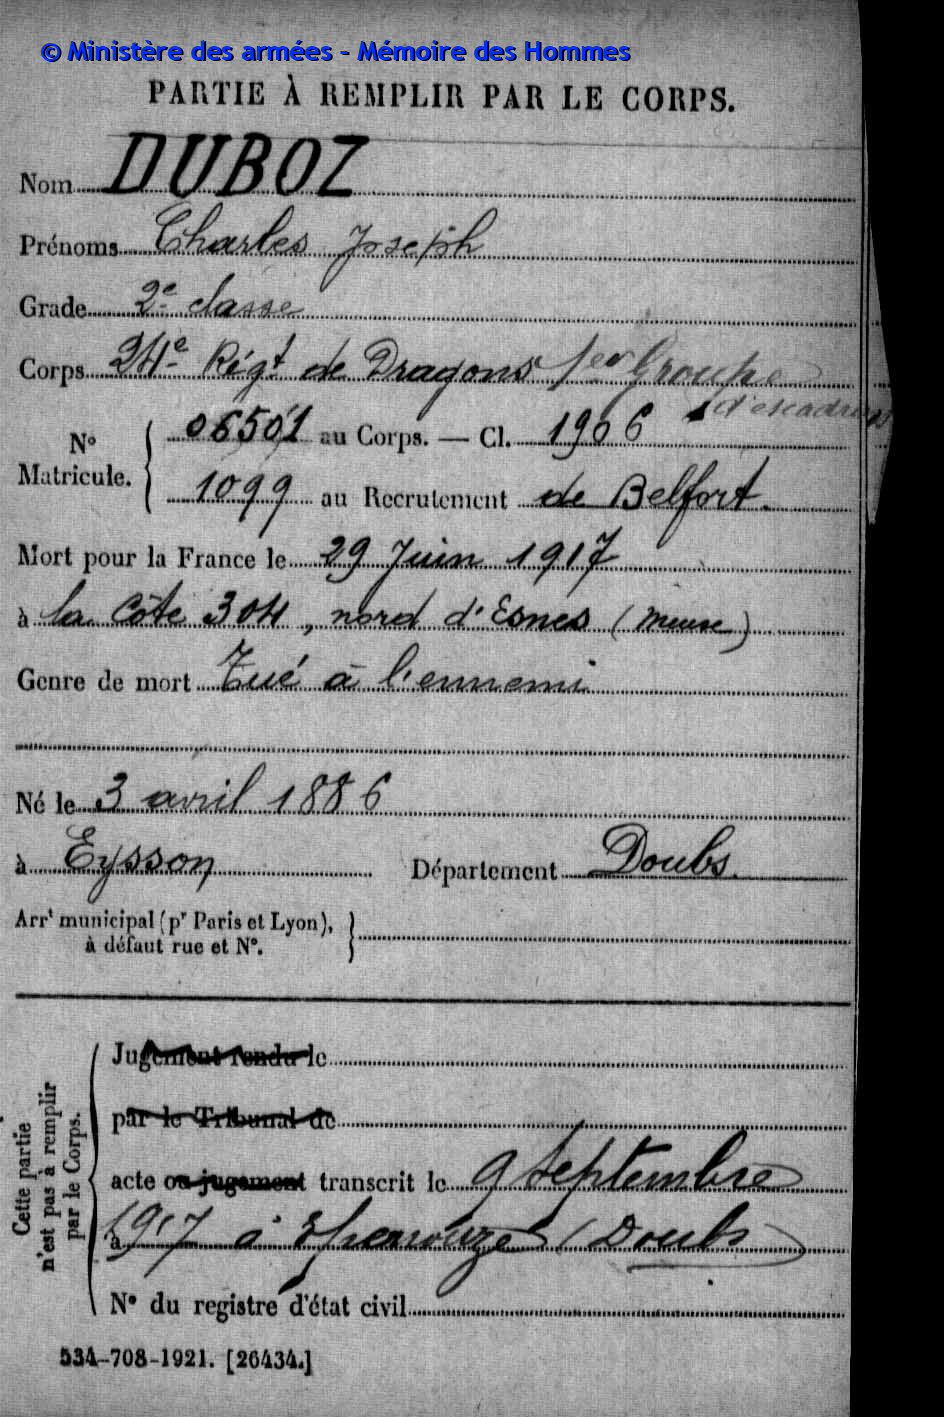 © Ministère des armées - Mémoire des Hommes
PARTIE À REMPLIR PAR LE CORPS.
Nom DUBOZ
Prénoms Charles Joseph
Grade 2e classe
Corps 24e Régt de Dragons 1er Groupe
d'escadrons
No Matricule. 06501 au Corps. — Cl. 1906
1099 au Recrutement de Belfort.
Mort pour la France le 29 Juin 1917
à la Côte 304, nord d'Esnes (Meuse)
Genre de mort Tué à l'ennemi
Né le 3 avril 1886
à Eysson Département Doubs.
Arrt municipal (pr Paris et Lyon),
à défaut rue et No.
Cette partie
n'est pas à remplir
par le Corps.
Jugement rendu le
par le Tribunal de
acte ou jugement transcrit le 9 Septembre
à 1917 à Epenouze (Doubs)
No du registre d'état civil
534-708-1921. [26434.]